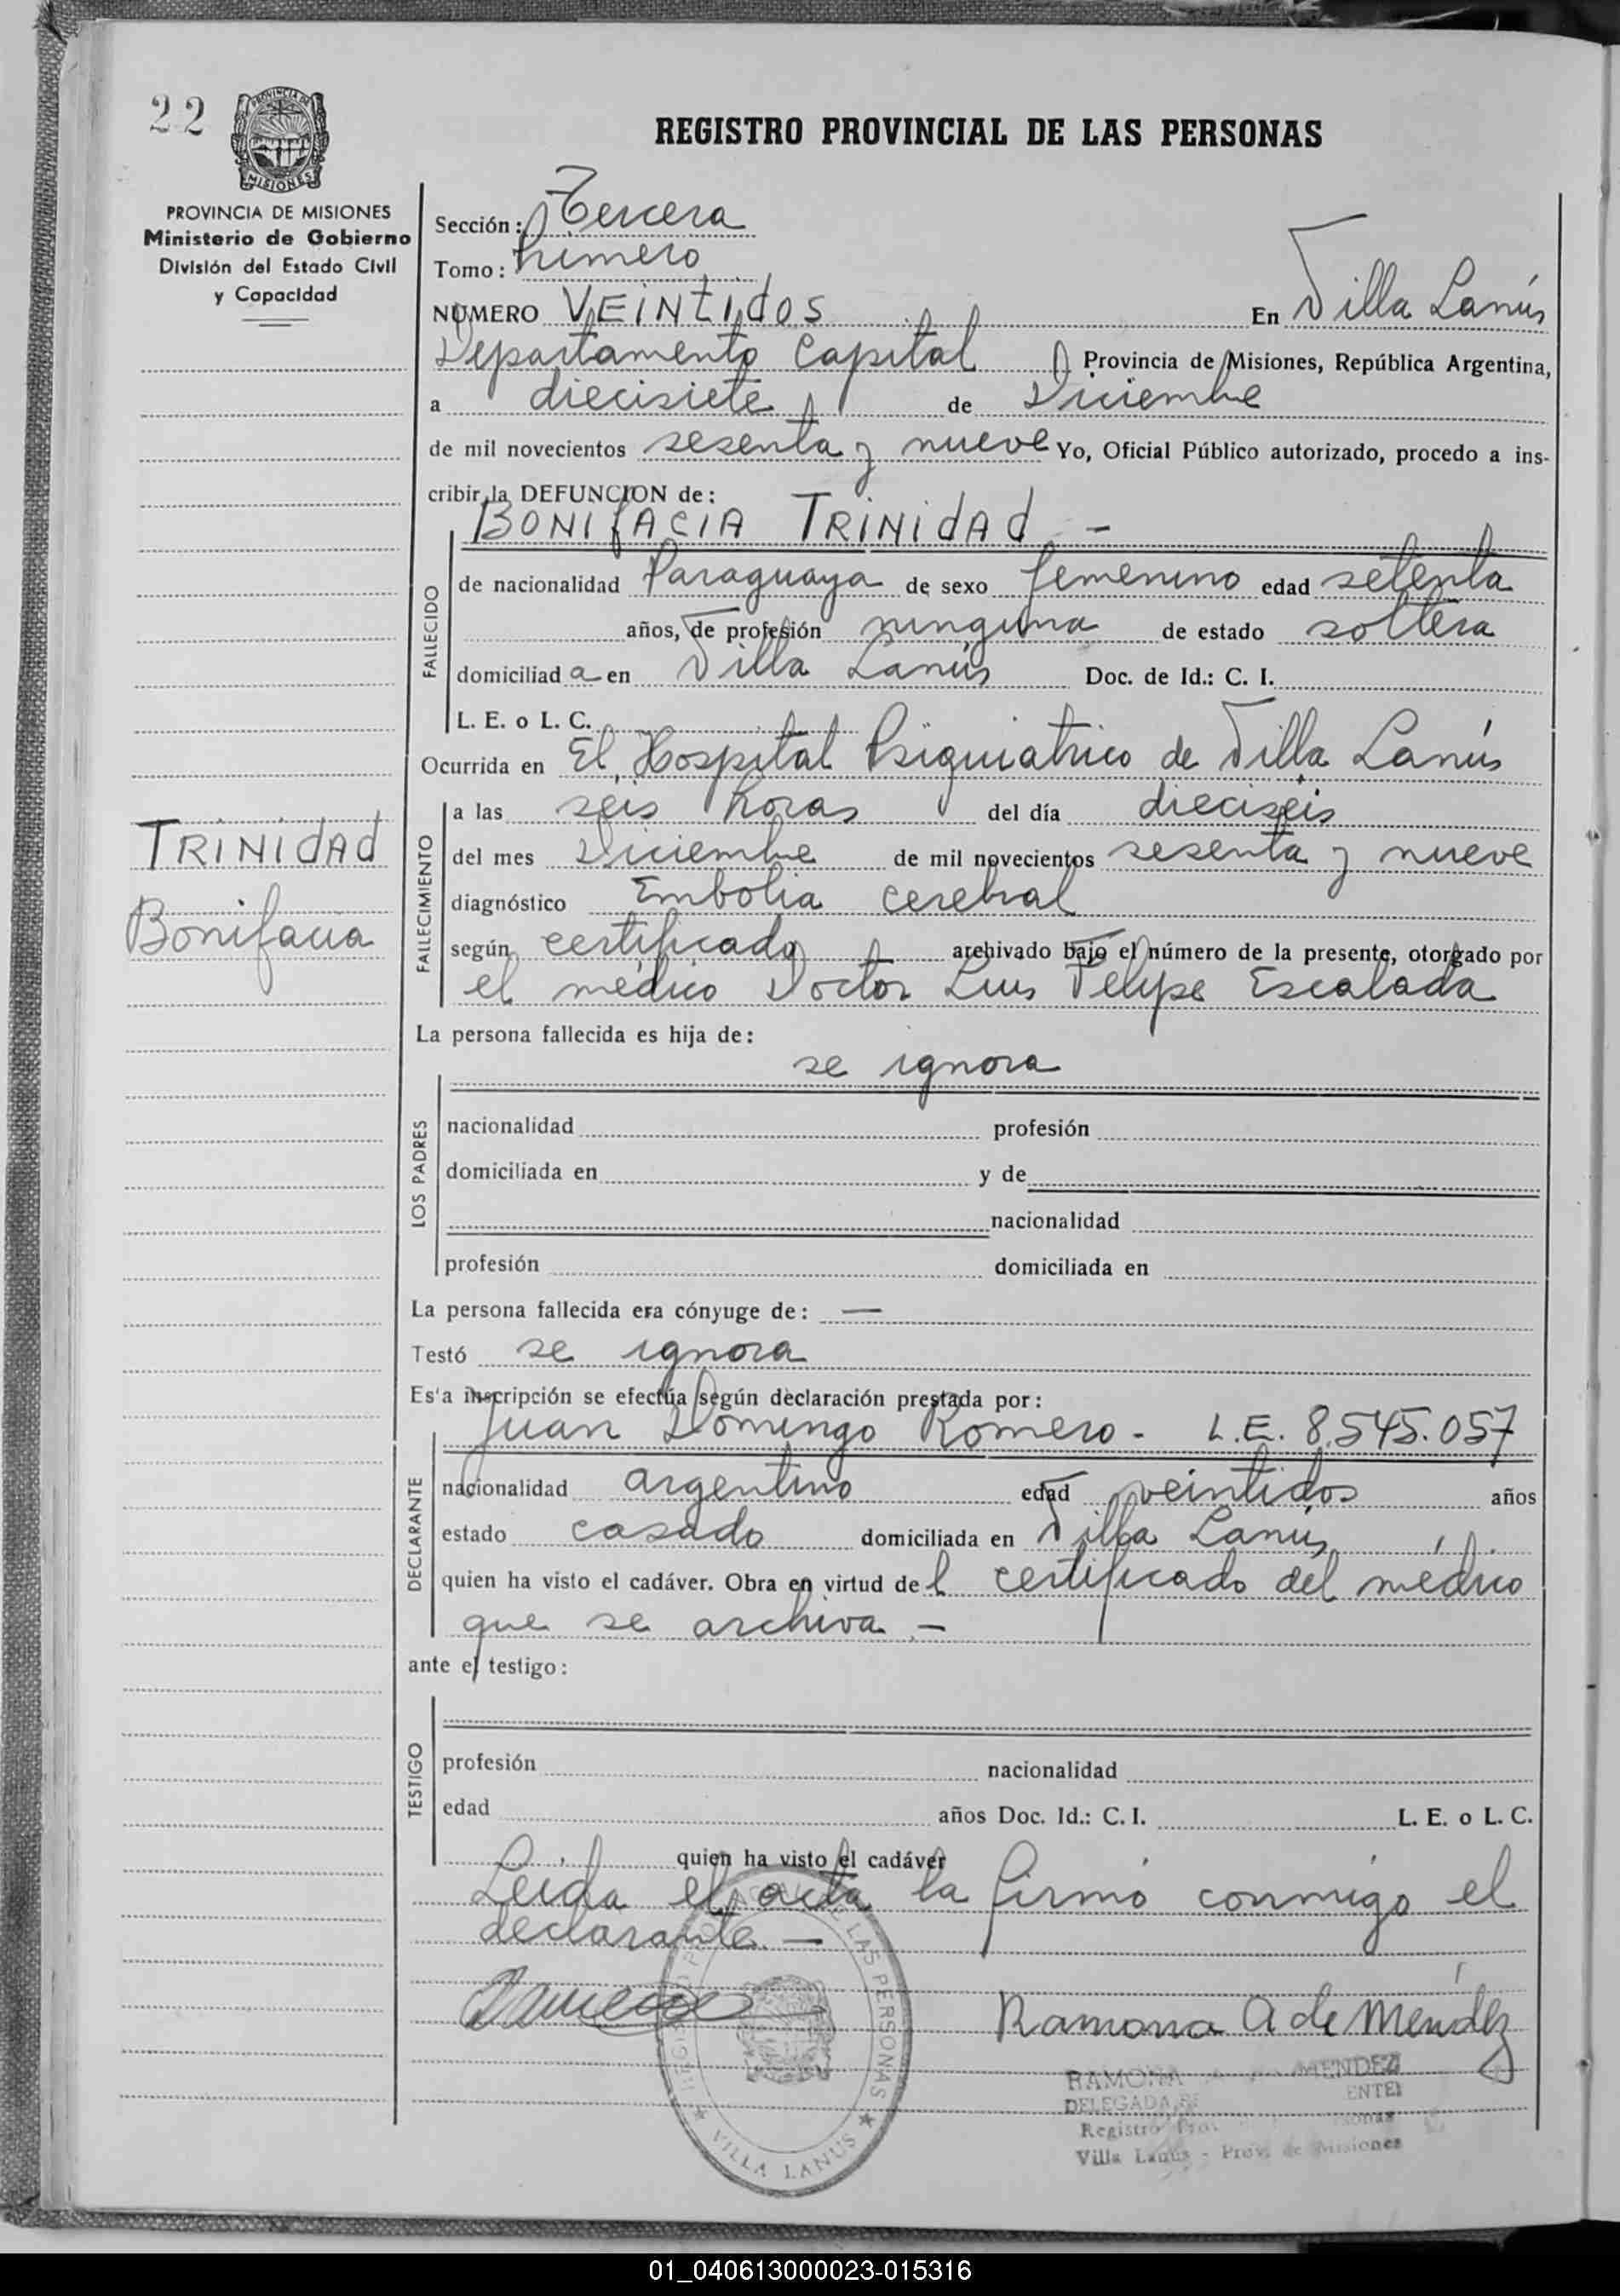 22
PROVINCIA DE MISIONES
REGISTRO PROVINCIAL DE LAS PERSONAS
PROVINCIA DE MISIONES
Ministerio de Gobierno
División del Estado Civil
y Capacidad
Sección: Tercera
Tomo: Primero
NUMERO VEINTIdOS En Villa Lanús
Departamento Capital Provincia de Misiones, República Argentina,
a diecisiete de Diciembre
de mil novecientos sesenta y nueve Yo, Oficial Público autorizado, procedo a ins-
cribir la DEFUNCION de:
BONIfACIA TRINIdAd -
FALLECIDO
de nacionalidad Paraguaya de sexo femenino edad setenta
años, de profesión ninguna de estado soltera
domiciliad a en Villa Lanús Doc. de Id.: C. I.
L. E. o L. C.
Ocurrida en El Hospital Psiquiatrico de Villa Lanús
TRINIdAd
Bonifacia
FALLECIMIENTO
a las seis horas del día dieciseis
del mes Diciembre de mil novecientos sesenta y nueve
diagnóstico Embolia cerebral
según certificado archivado bajo el número de la presente, otorgado por
el médico Doctor Luis Felipe Escalada
La persona fallecida es hija de:
se ignora
LOS PADRES
nacionalidad profesión
domiciliada en y de
nacionalidad
profesión domiciliada en
La persona fallecida era cónyuge de: —
Testó se ignora
Es'a inscripción se efectúa según declaración prestada por:
Juan Domingo Romero - L.E. 8.545.057
DECLARANTE
nacionalidad argentino edad veintidos años
estado casado domiciliada en Villa Lanús
quien ha visto el cadáver. Obra en virtud de l certificado del médico
que se archiva. -
ante el testigo:
TESTIGO
profesión nacionalidad
edad años Doc. Id.: C. I. L. E. o L. C.
quien ha visto el cadáver
Leida el acta la firmó conmigo el
declarante. —
Ramona A de Méndez
RAMONA MENDEZ
DELEGADA
Registro
Villa Lanús - Prov. de Misiones
LAS PERSONAS
★ VILLA LANUS ★
01_040613000023-015316